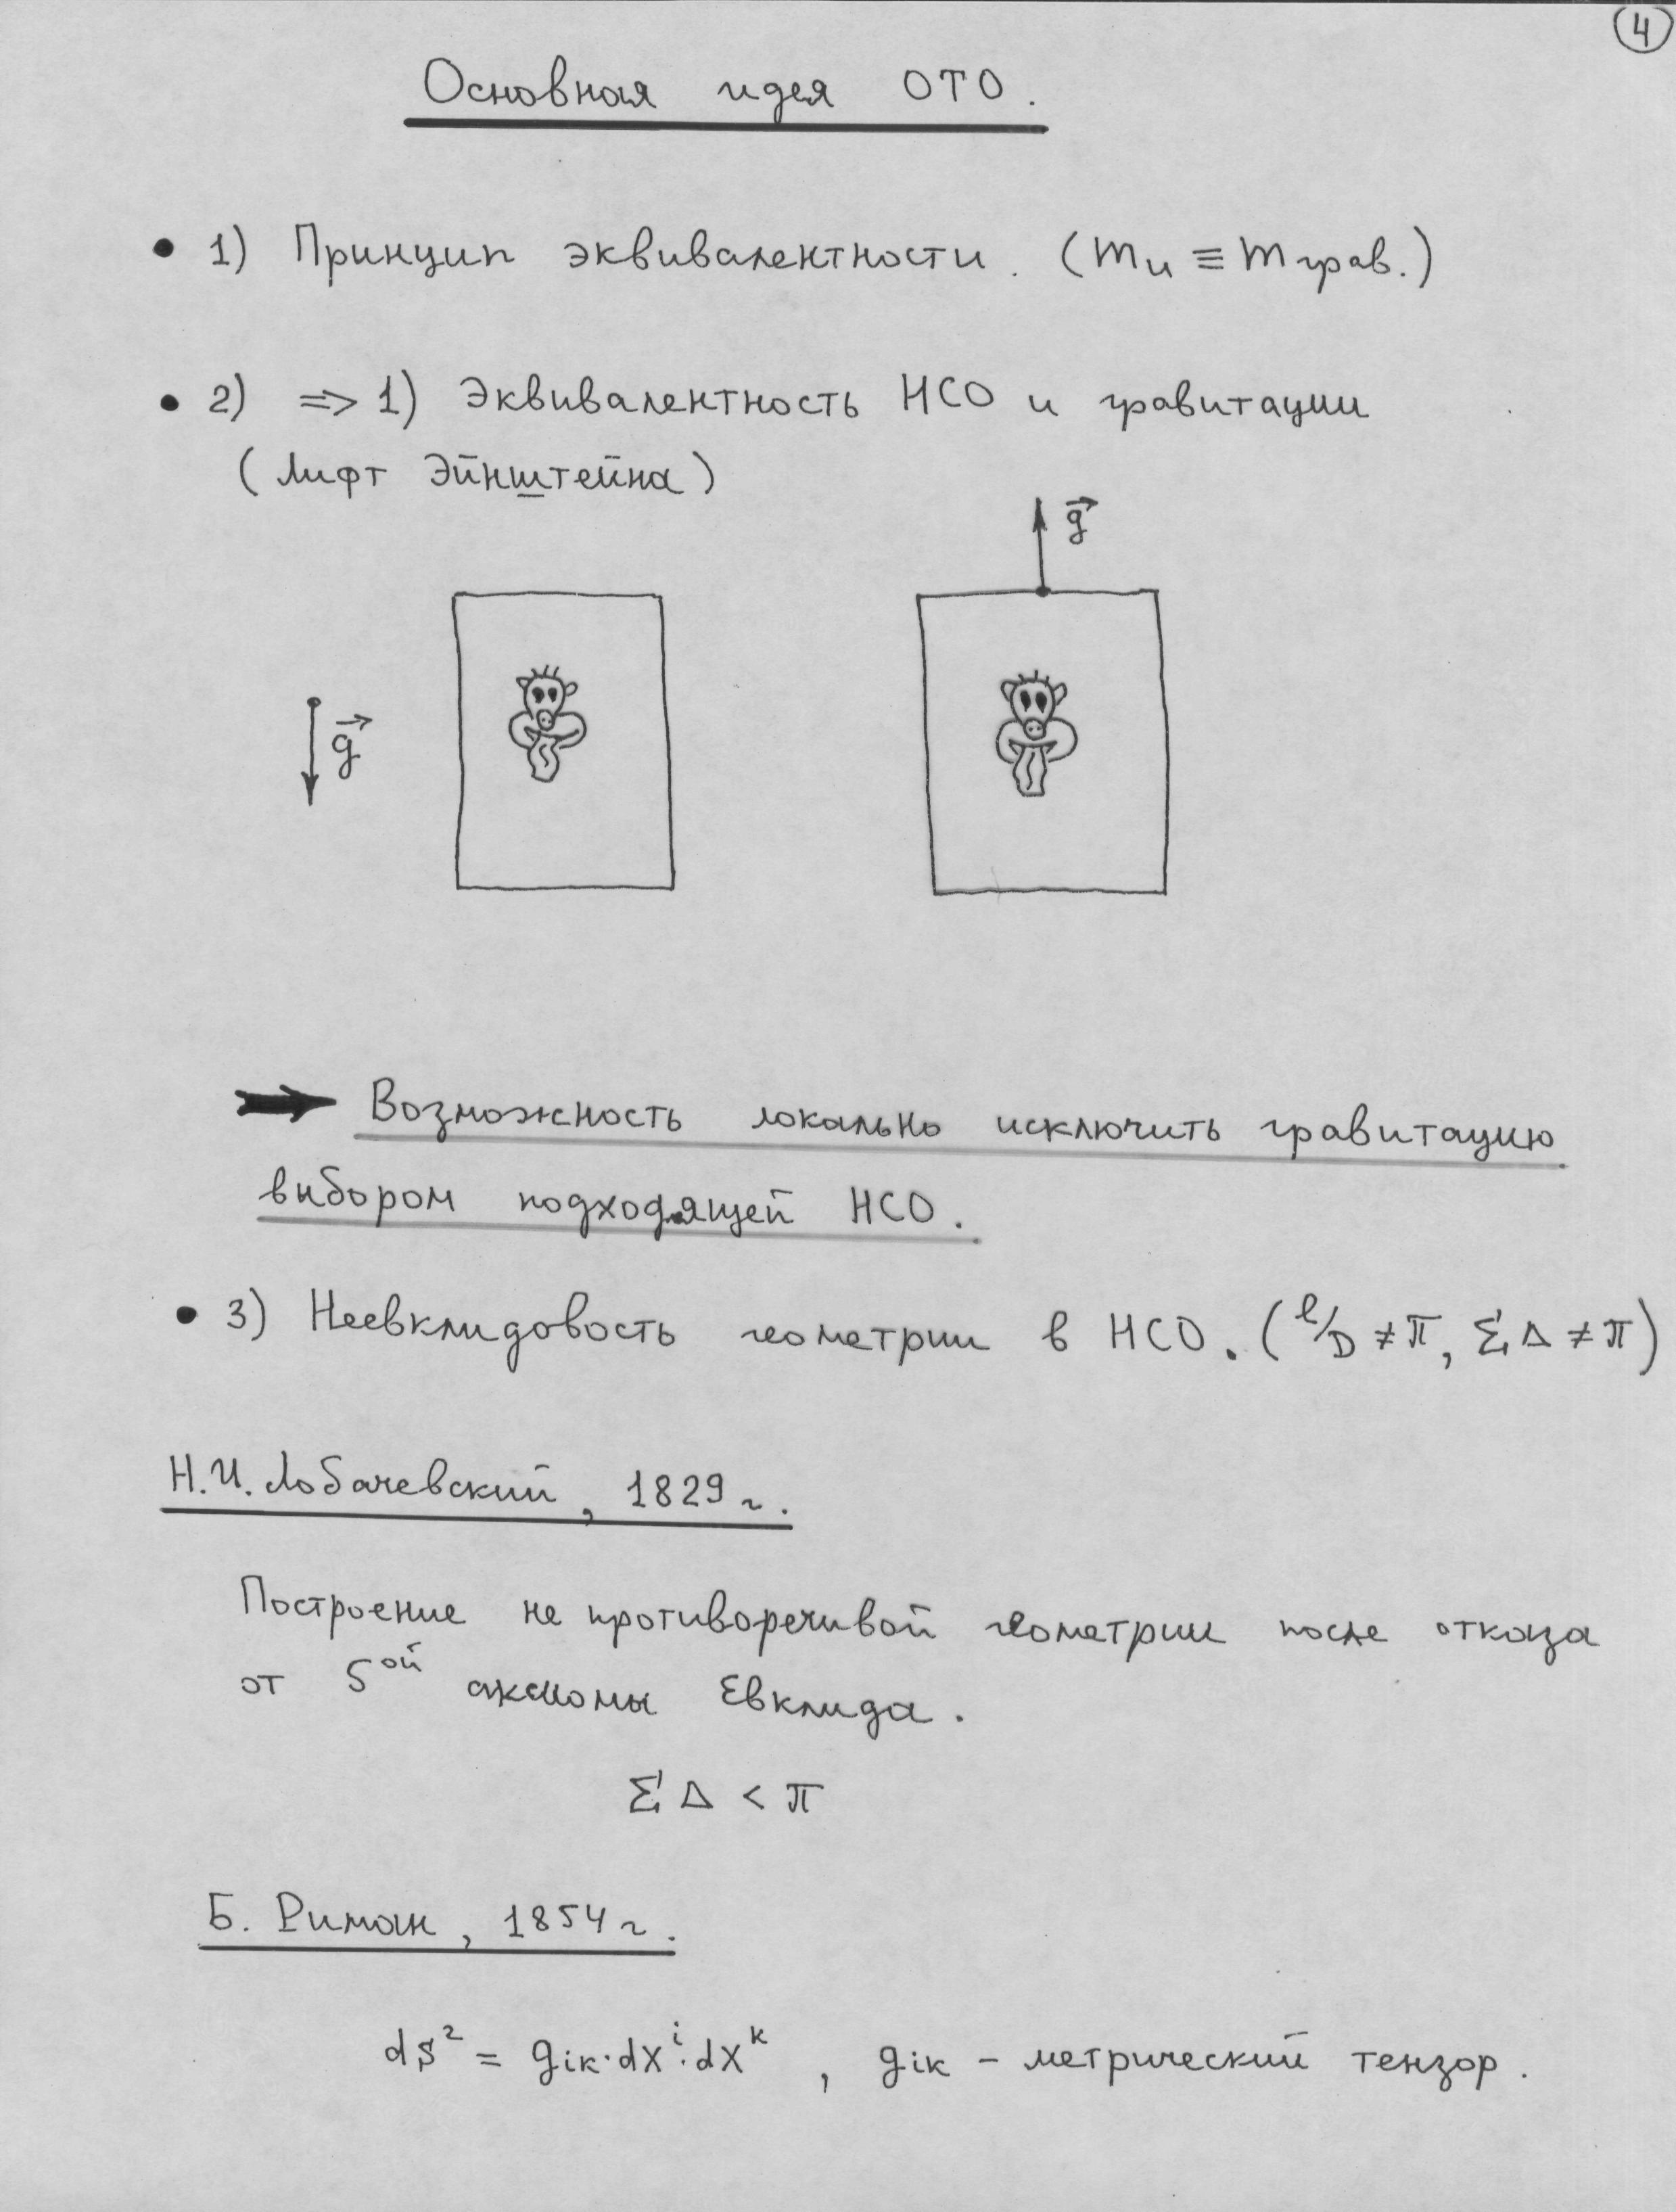 4
Основная идея ОТО.
• 1) Принцип эквивалентности. (mи ≡ mграв.)
• 2) => 1) Эквивалентность НСО и гравитации
(Лифт Эйнштейна)
g⃗
g⃗
→ Возможность локально исключить гравитацию
выбором подходящей НСО.
• 3) Неевклидовость геометрии в НСО. (l/D ≠ π, Σ Δ ≠ π)
Н.И. Лобачевский, 1829 г.
Построение не противоречивой геометрии после отказа
от 5ой аксиомы Евклида.
Σ Δ < π
Б. Риман, 1854 г.
dS² = gik·dxⁱ·dxᵏ, gik – метрический тензор.